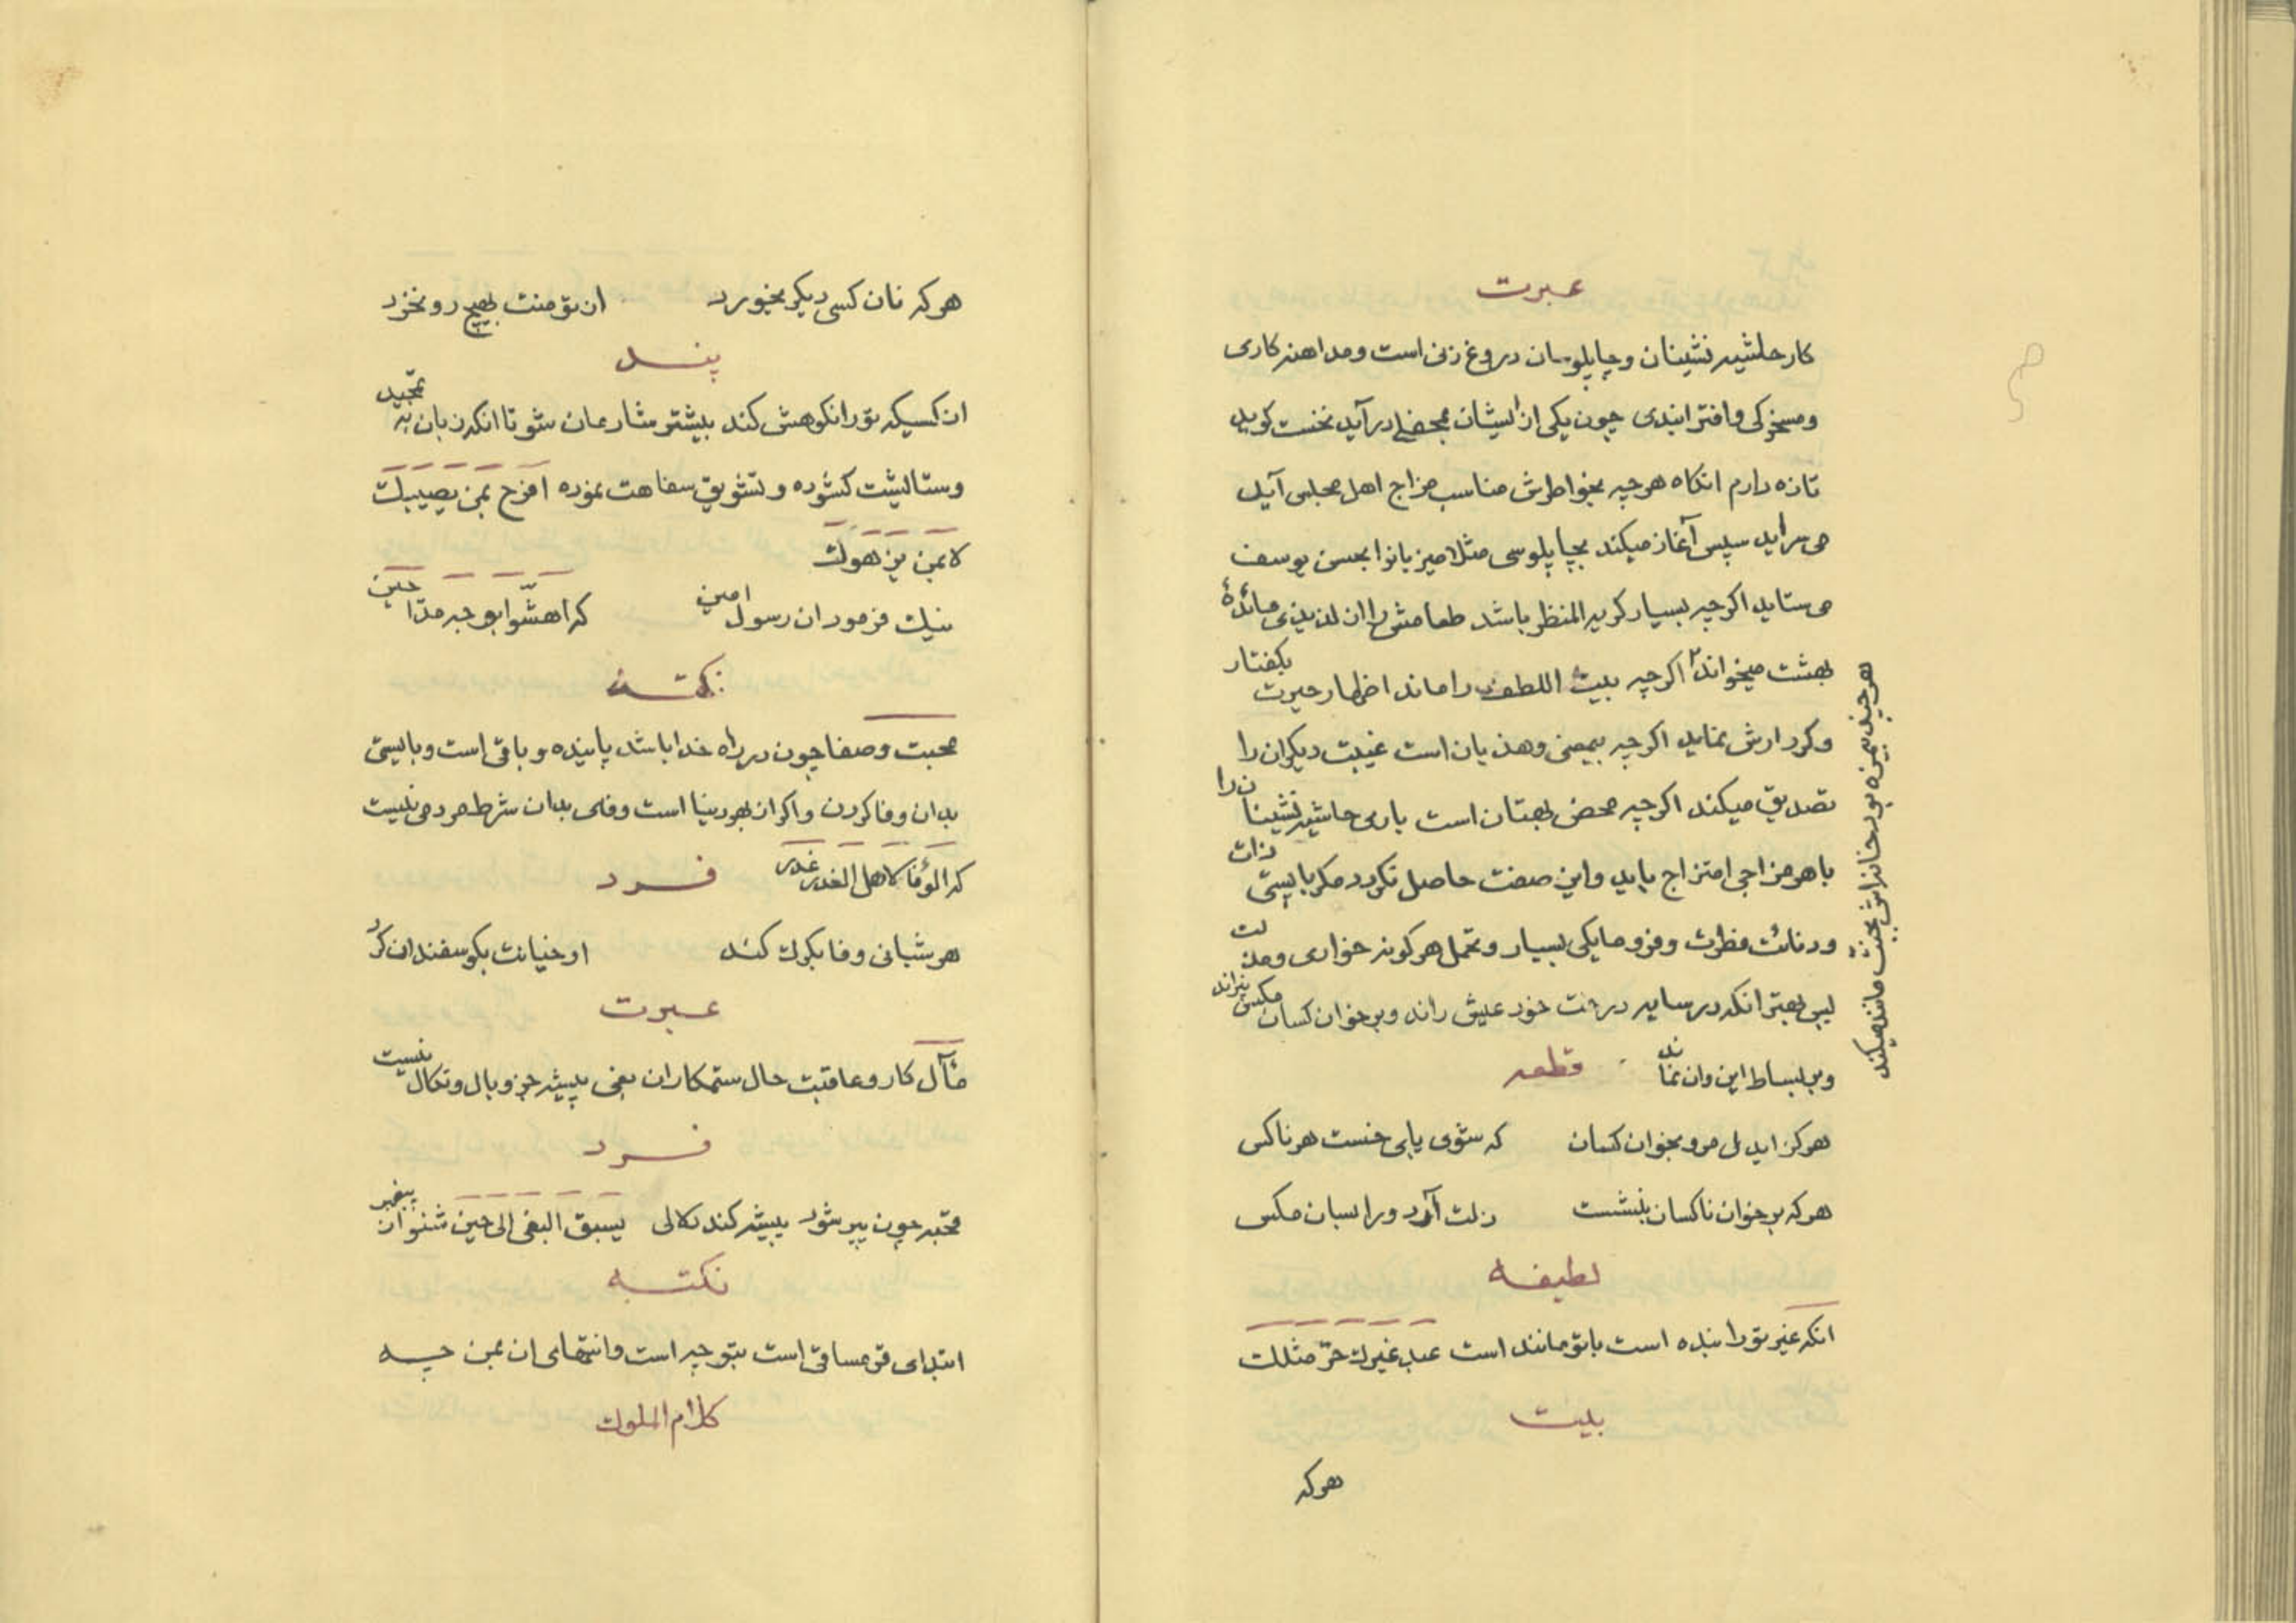 عبرت
کار حاشیه نشینان و چاپلوسان دروغ زنی است و مداهنه کاری
و مسخرکی و افترا بندی چون یکی از ایشان بمحضلی درآید نخست کوید
تازه دارم انکاه هرچه بخواطرش مناسب مزاج اهل مجلس آید
می سراید سپس آغاز میکند بچاپلوسی مثلا میزبانرا بحسن یوسف
می ستاید اکرچه بسیار کریه المنظر باشد طعامش را از لذیذی مائدۀ
بهشت میخواند اکرچه بیت اللطف را ماند اظهار حیرت بکفتار
و کردارش نماید اکرچه بیمعنی و هذیان است غیبت دیکران را
تصدیق میکند اکرچه محض بهتان است باری حاشیه نشینان را
با هر مزاجی امتزاج باید و این صفت حاصل نکردد مکر با پستی ذات
و دنائت فطرت و فرومایکی بسیار و تحمل هرکونه خواری و مذلت
پس بهتر انکه در سایه درخت خود عیش راند و بر خوان کسان مکس نراند
و بر بساط این و ان نماند قطعه
هرکز ایدل مرو بخوان کسان که شوی پایی خست هر ناکس
هرکه بر خوان ناکسان بنشست ذلت آرد ورا بسان مکس
لطیفه
انکه غیر تو را بنده است با تو مانند است عبد غیرک حرّ مثلک
بیت
هرکه
هرچند بیمزه بود خانه اش بجنت مانند میکند
هرکه نان کسی دیکر بخورد از تو منت بهیچ رو نخرد
پند
ان کسیکه تو را نکوهش کند بیشتر شادمان شو تا انکه زبان به تمجید
و ستایشت کشوده و تشویق سفاهت نموده افرح بمن یعیبک
لا بمن یزهوک
نیک فرمود ان رسول امین که اهشّوا بوجه مدّاحین
نکته
محبت و صفا چون در راه خدا باشد پاینده و باقی است و بایستی
بدان وفا کردن و اکر از بهر دنیا است وفای بدان شرط مردمی نیست
که الوفا لاهل الغدر غدر فرد
هر شبانی وفا بکرک کند او خیانت بکوسفندان کرد
عبرت
مآل کار و عاقبت حال ستمکاران بغی پیشه جز وبال و نکال نیست
فرد
قحبه چون پیر شود پیشه کند دلالی یسبق البغی الی حین شنو از پیغمبر
نکته
ابتدای قرمساقی است بتو چه است و انتهای ان بمن چه
کلام الملوک